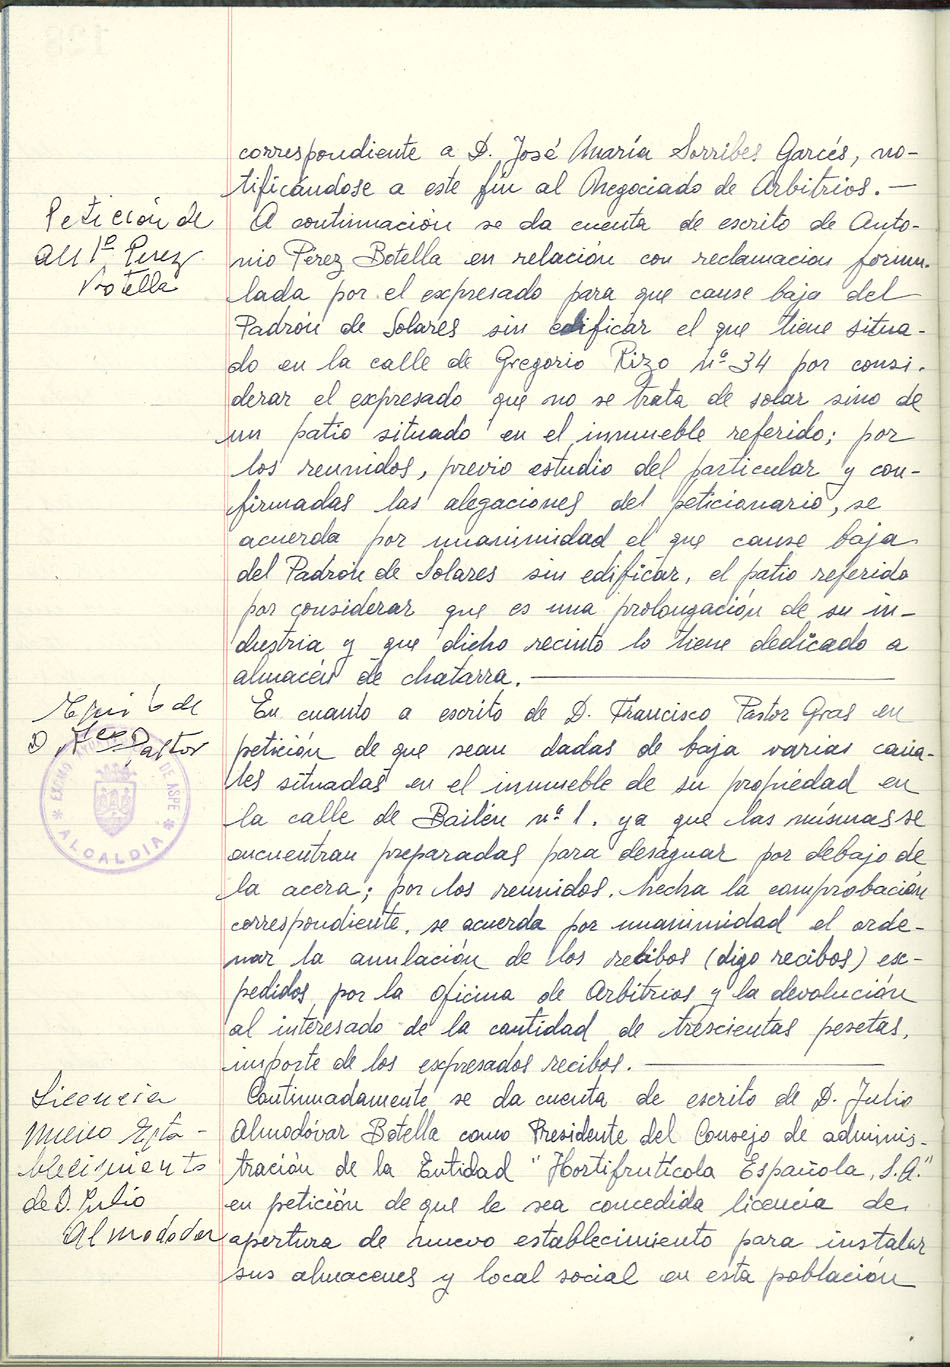 correspondiente a D. José María Sorribes Garcés, no-
tificándose a este fin al Negociado de Arbitrios. —
Petición de
Antº Perez
Botella
A continuación se da cuenta de escrito de Anto-
nio Pérez Botella en relación con reclamación formu-
lada por el expresado para que cause baja del
Padrón de Solares sin edificar el que tiene situa-
do en la calle de Gregorio Rizo nº 34 por consi-
derar el expresado que no se trata de solar sino de
un patio situado en el inmueble referido; por
los reunidos, previo estudio del particular y con-
firmadas las alegaciones del peticionario, se
acuerda por unanimidad el que cause baja
del Padrón de Solares sin edificar, el patio referido
por considerar que es una prolongación de su in-
dustria y que dicho recinto lo tiene dedicado a
almacén de chatarra. —
de
D. Fco Pastor
EXCMO. DE ASPE
* ALCALDIA *
En cuanto a escrito de D. Francisco Pastor Gras en
petición de que sean dadas de baja varias cana-
les situadas en el inmueble de su propiedad en
la calle de Bailén nº 1. ya que las mismas se
encuentran preparadas para desaguar por debajo de
la acera; por los reunidos, hecha la comprobación
correspondiente, se acuerda por unanimidad el orde-
nar la anulación de los retibos (digo recibos) ex-
pedidos por la oficina de Arbitrios y la devolución
al interesado de la cantidad de trescientas pesetas,
importe de los expresados recibos. —
Licencia
nuevo Esta-
blecimiento
de D. Julio
Almodovar
Continuadamente se da cuenta de escrito de D. Julio
Almodóvar Botella como Presidente del Consejo de adminis-
tración de la Entidad "Hortifrutícola Española, S.A."
en petición de que le sea concedida licencia de
apertura de nuevo establecimiento para instalar
sus almacenes y local social en esta población